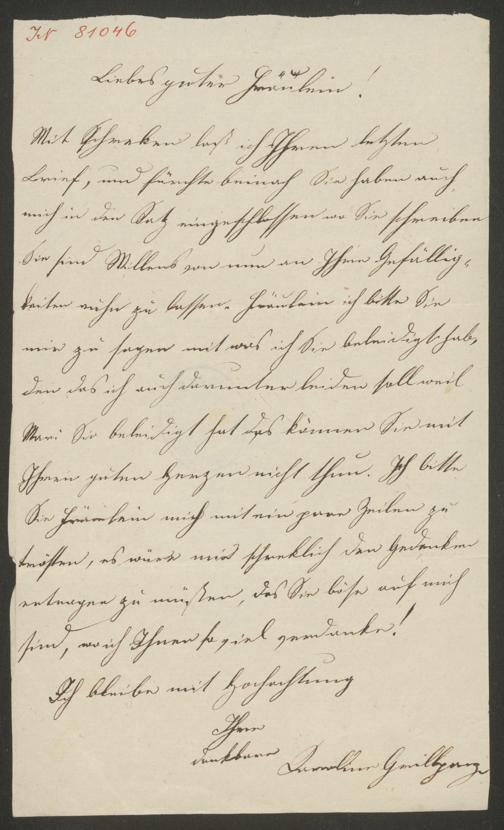 IN 81046
Liebes guter Fräulein!
Mit Schreken laß ich Ihren letzten
Brief, und fürchte beinah Sie haben auch
mich in den Satz eingeschlossen wo Sie schreiben
Sie sind Willens von nun an Ihre Gefällig-
keiten ruhn zu lassen. Fräulein ich bitte Sie
mir zu sagen mit was ich Sie beleidigt hab,
den das ich auch darunter leiden soll weil
Mari Sie beleidigt hat das können Sie mit
Ihren guten Herzen nicht thun. Ich bitte
Sie Fräulein mich mit ein paar Zeilen zu
trösten, es wäre mir schreklich den Gedanken
ertragen zu müßen, das Sie böse auf mich
sind, wo ich Ihnen so viel verdanke!
Ich bleibe mit Hochachtung
Ihre
dankbare Caroline Grillparzer